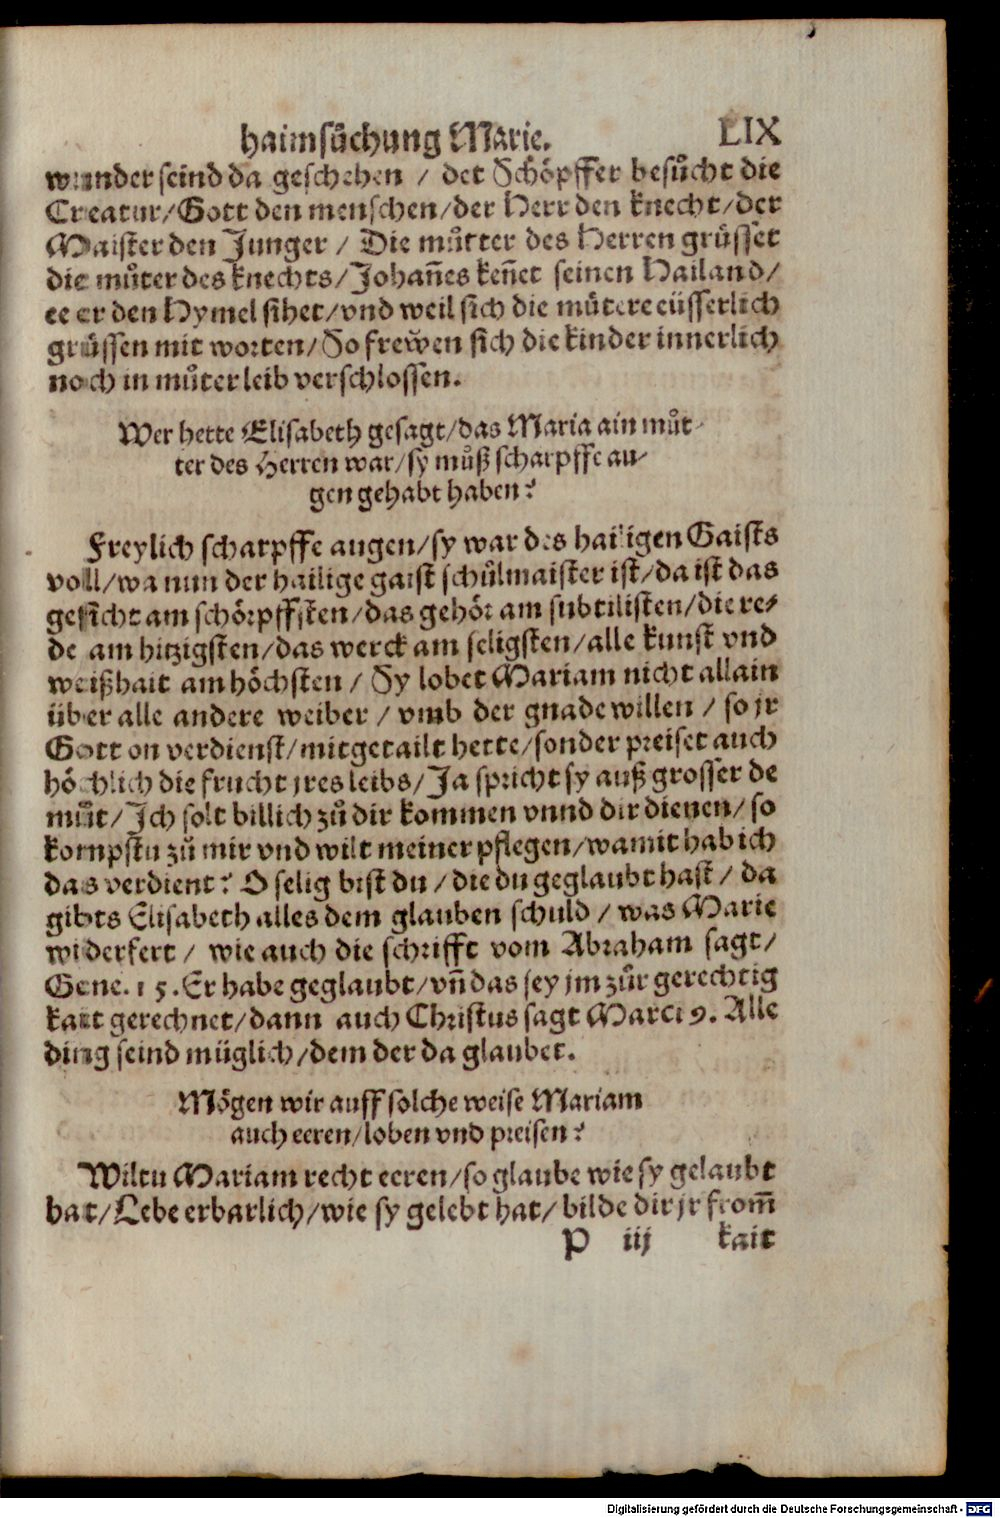 haimsůchung Marie. LIX
wunder seind da geschehen / der Schöpffer besůcht die
Creatur/Gott den menschen/der Herr den knecht/der
Maister den Junger / Die můtter des Herren grüsset
die můter des knechts/Johañes keñet seinen Hailand/
ee er den Hymel sihet/vnd weil sich die mütere eüsserlich
grüssen mit worten/So frewen sich die kinder innerlich
noch in můter leib verschlossen.
Wer hette Elisabeth gesagt/das Maria ain můt-
ter des Herren war/sy můß scharpffe au-
gen gehabt haben?
Freylich scharpffe augen/sy war des hailigen Gaists
voll/wa nun der hailige gaist schůlmaister ist/da ist das
gesicht am schörpffsten/das gehör am subtilisten/die re-
de am hitzigsten/das werck am seligsten/alle kunst vnd
weißhait am höchsten / Sy lobet Mariam nicht allain
über alle andere weiber / vmb der gnade willen / so jr
Gott on verdienst/mitgetailt hette/sonder preiset auch
höchlich die frucht jres leibs/Ja spricht sy auß grosser de
můt/Ich solt billich zů dir kommen vnnd dir dienen/so
kompstu zů mir vnd wilt meiner pflegen/wamit hab ich
das verdient? O selig bist du / die du geglaubt hast / da
gibts Elisabeth alles dem glauben schuld / was Marie
widerfert / wie auch die schrifft vom Abraham sagt/
Gene. 15. Er habe geglaubt/vñ das sey jm zůr gerechtig
kait gerechnet/dann auch Christus sagt Marci 9. Alle
ding seind müglich/dem der da glaubet.
Mögen wir auff solche weise Mariam
auch eeren/loben vnd preisen?
Wiltu Mariam recht eeren/so glaube wie sy gelaubt
hat/Lebe erbarlich/wie sy gelebt hat/bilde dir jr from̃
P iij kait
Digitalisierung gefördert durch die Deutsche Forschungsgemeinschaft - DFG